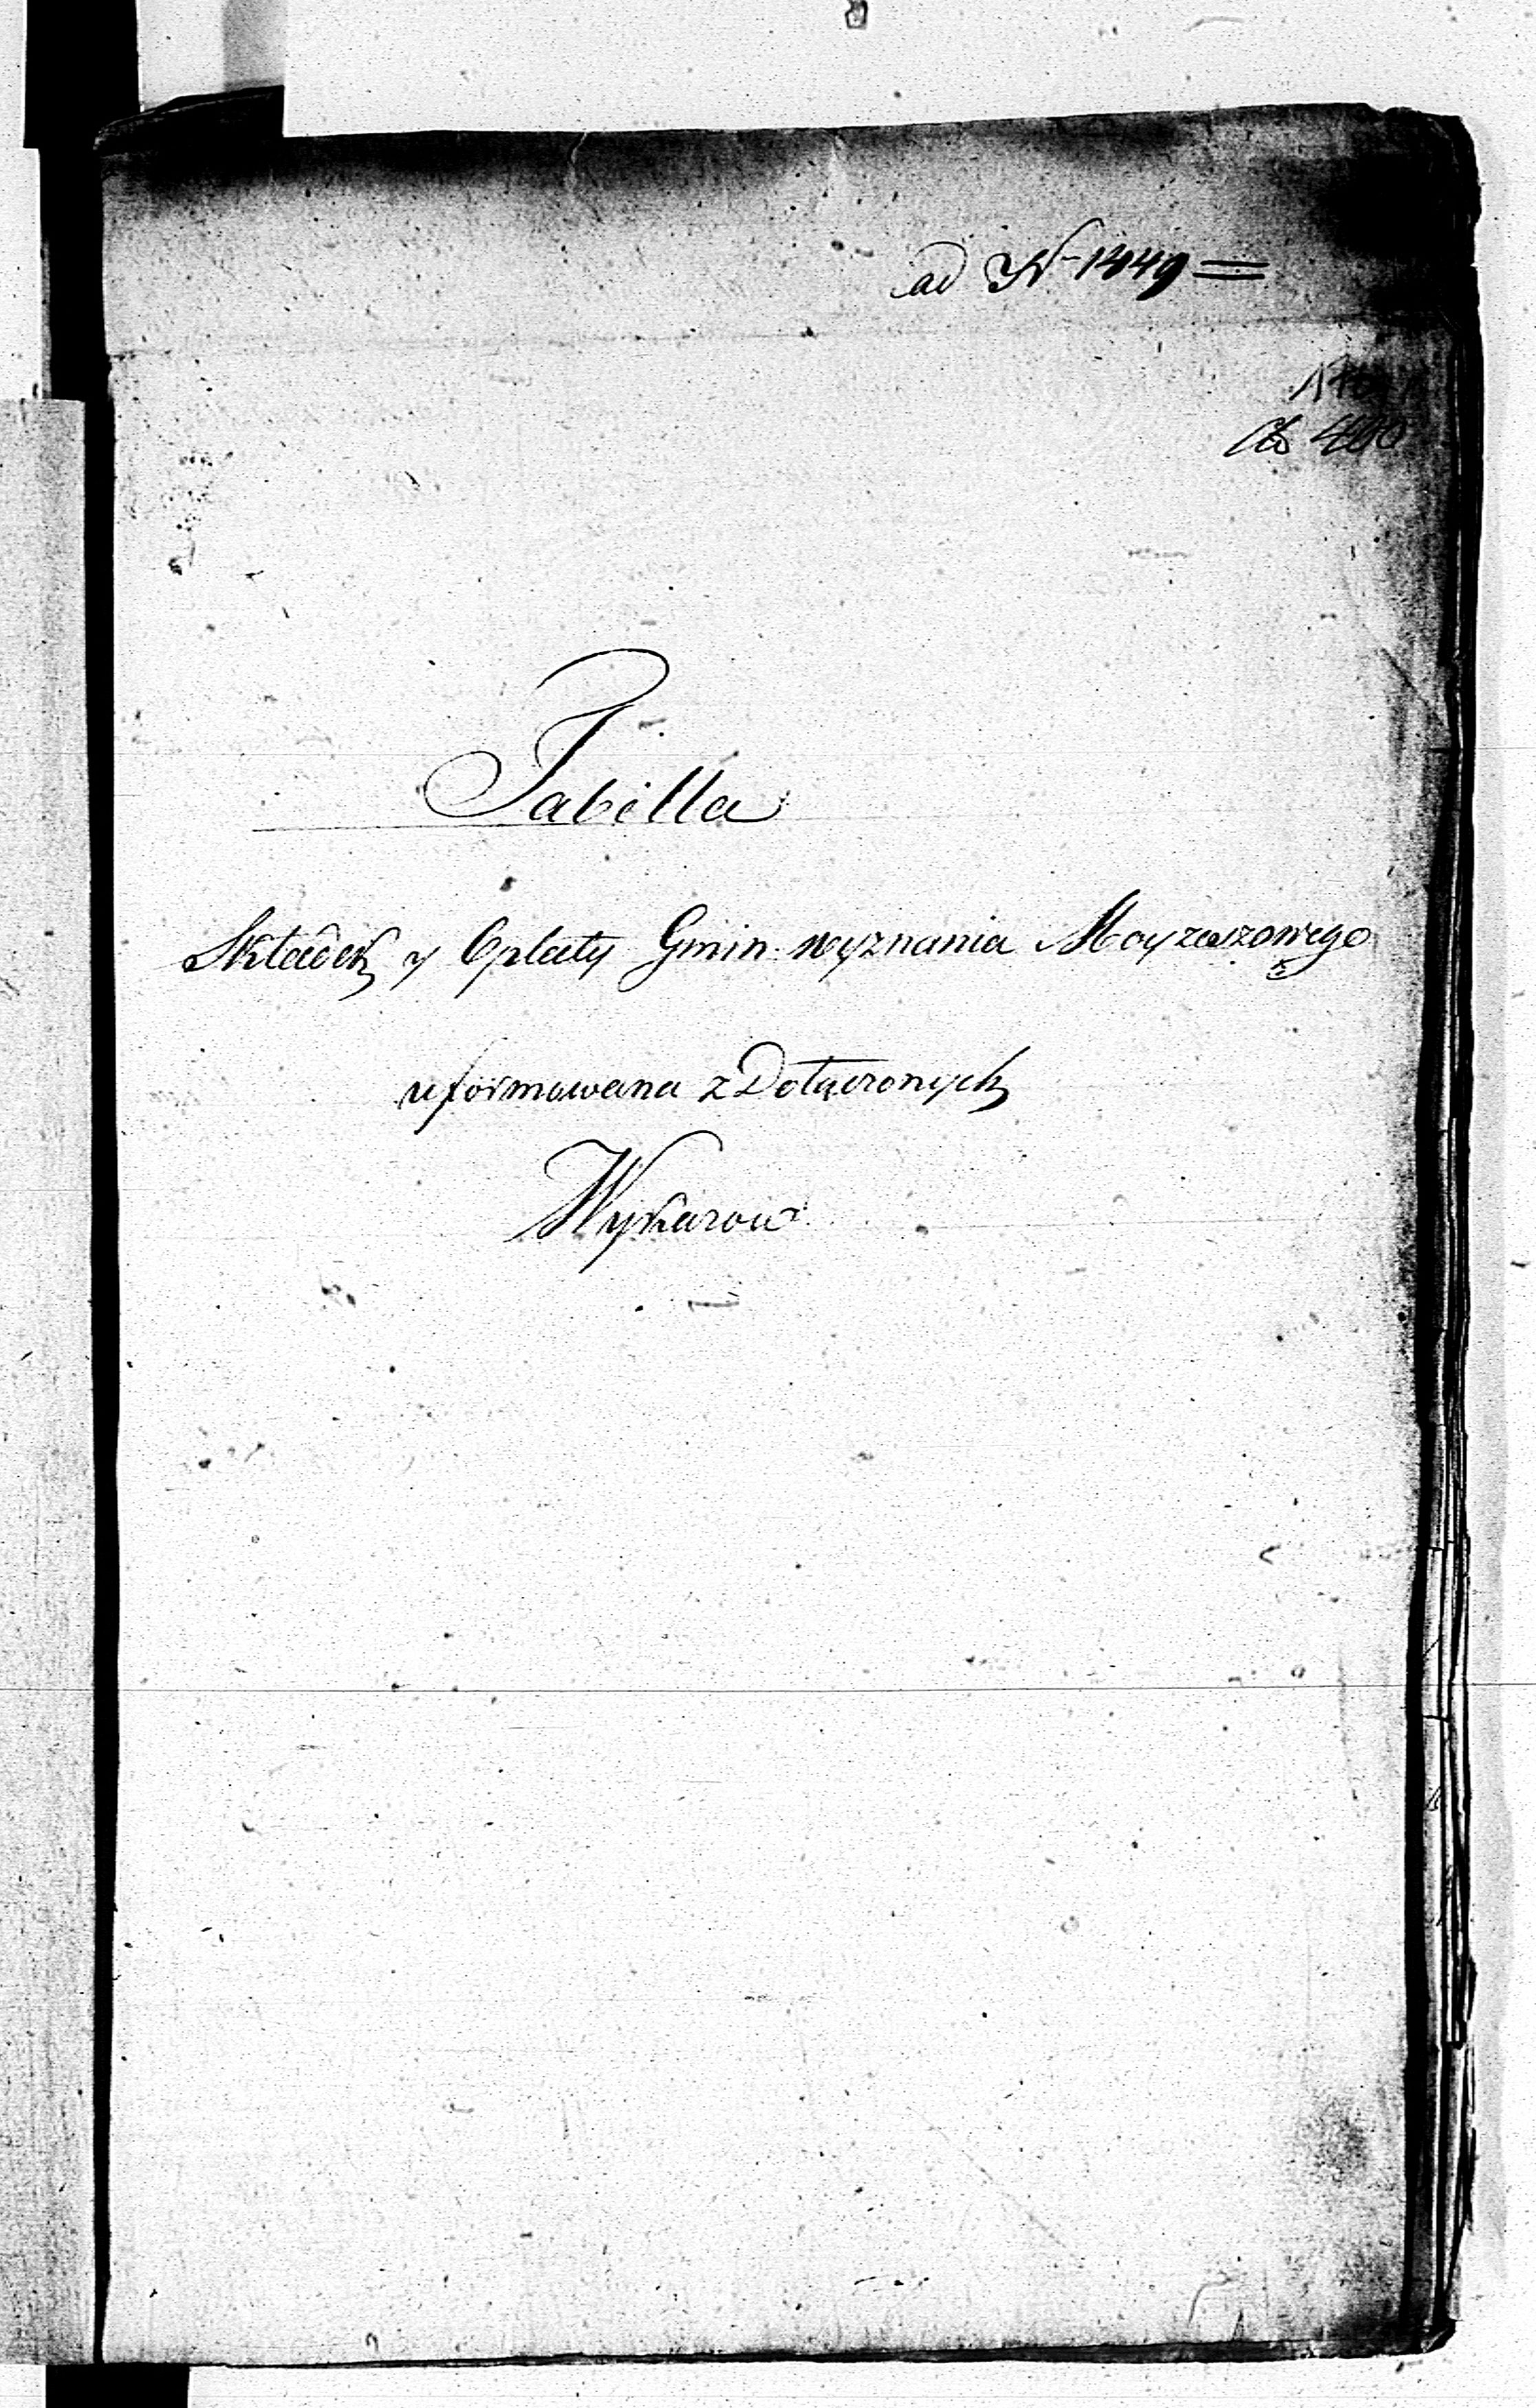 ad N 1449
400
Tabella
Składek y Opłaty Gmin wyznania Moyzeszowego
uformowana z Dołączonych
Wykazow